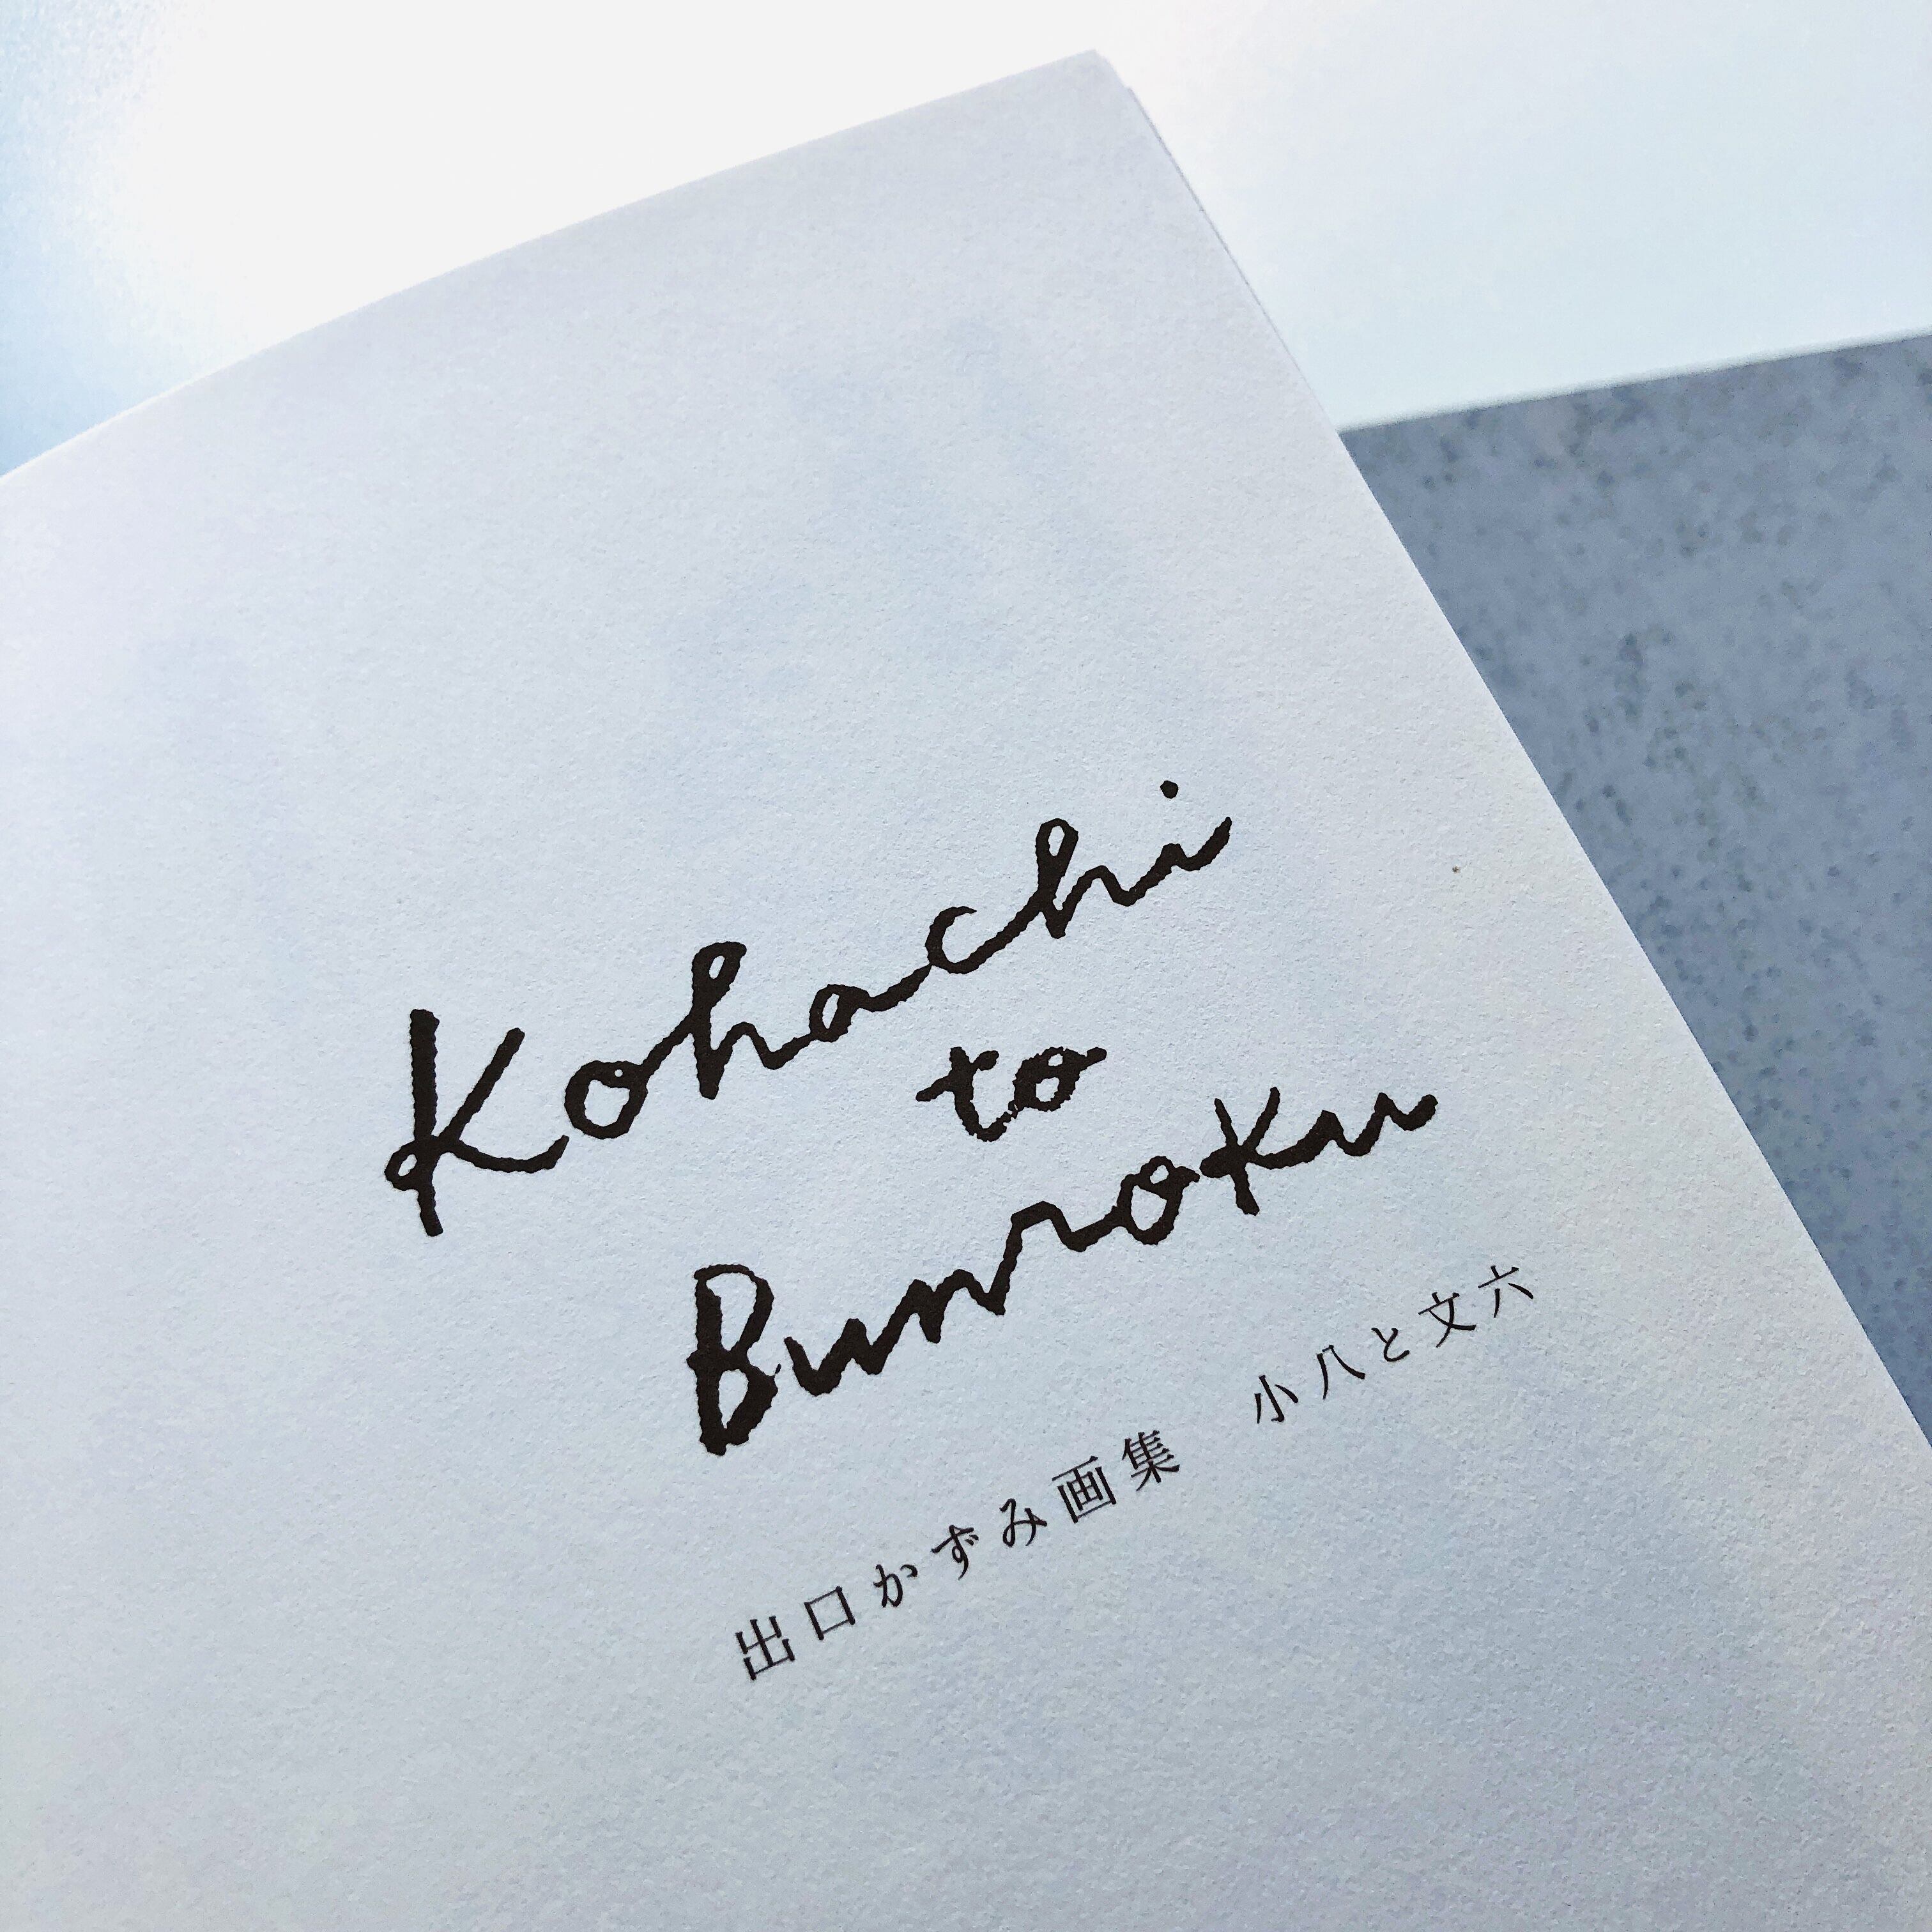 Kohachi
to
Bunroku
出口かずみ画集　小八と文六